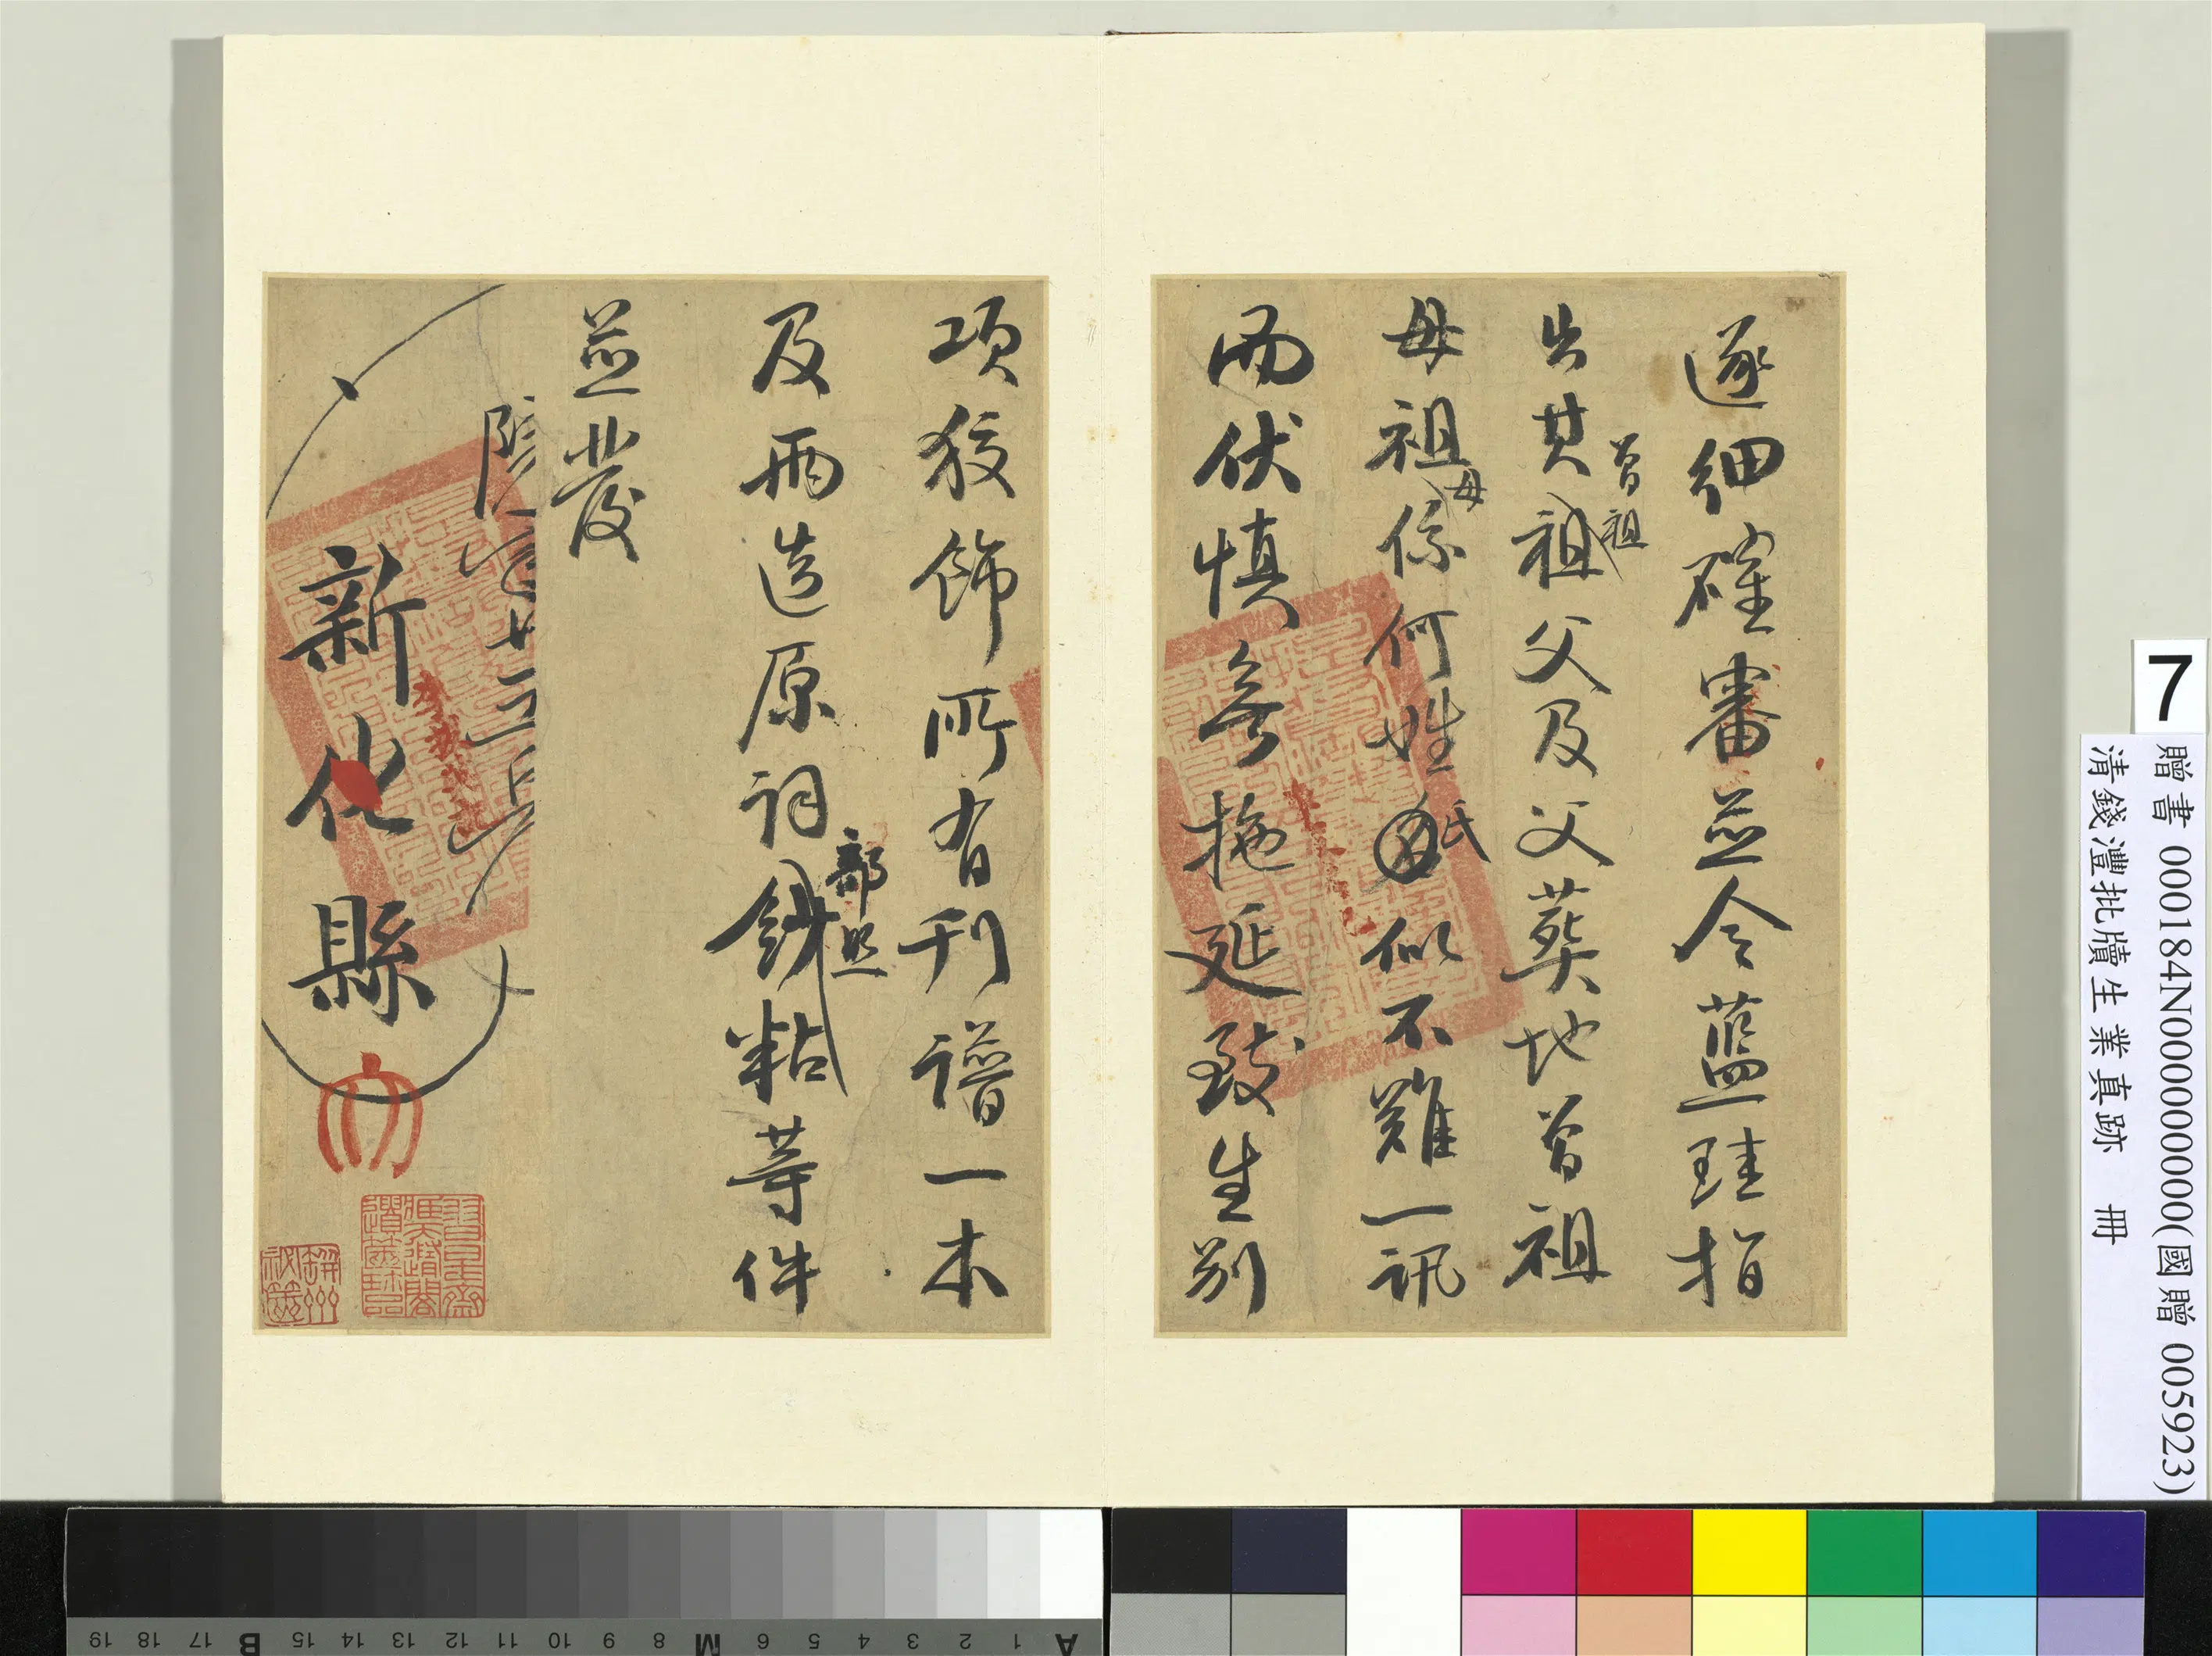 逐細確審並令藍珪指
出其祖父及父葬地曾祖
曾祖
母祖係何姓氏似不難一訊
母
而伏慎毋拖延致生別
項狡飾所有刊譜一本
及兩造原詞鈔粘等件
部照
並發
新化縣
7
贈書 000184N000000000(國贈 005923)
清錢灃批牘生業真跡 冊
19 18 17 B 15 14 13 12 11 10 9 8 M 6 5 4 3 2 1 A